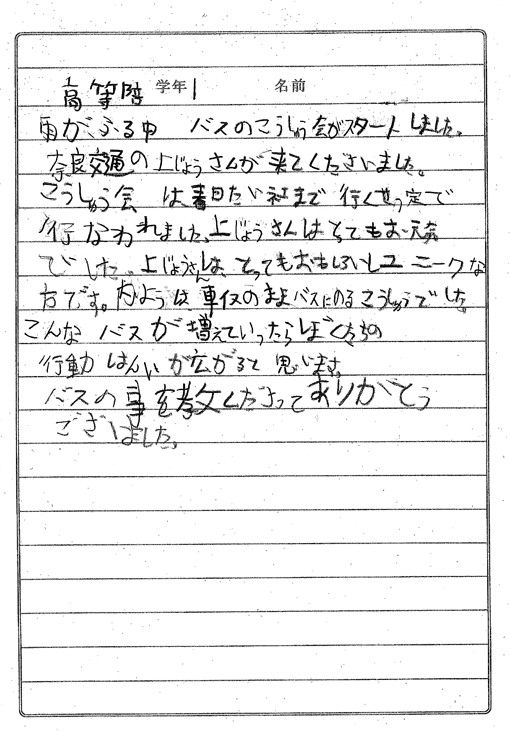 高等部 学年1 名前
雨がふる中 バスのこうしゅう会がスタートしました。
奈良交通の上じょうさんが来てくださいました。
こうしゅう会 は春日たい社まで 行くせっ定で
行なわれました。上じょうさんはとってもお元気
でした。上じょうさんは、とってもおもしろいしユニークな
方です。ないようは車イスのままバスにのるこうしゅうでした。
こんな バスが 増えていったらぼくたちの
行動 はんいが広がると 思います。
バスの事を教えてくださってありがとう
ございました。